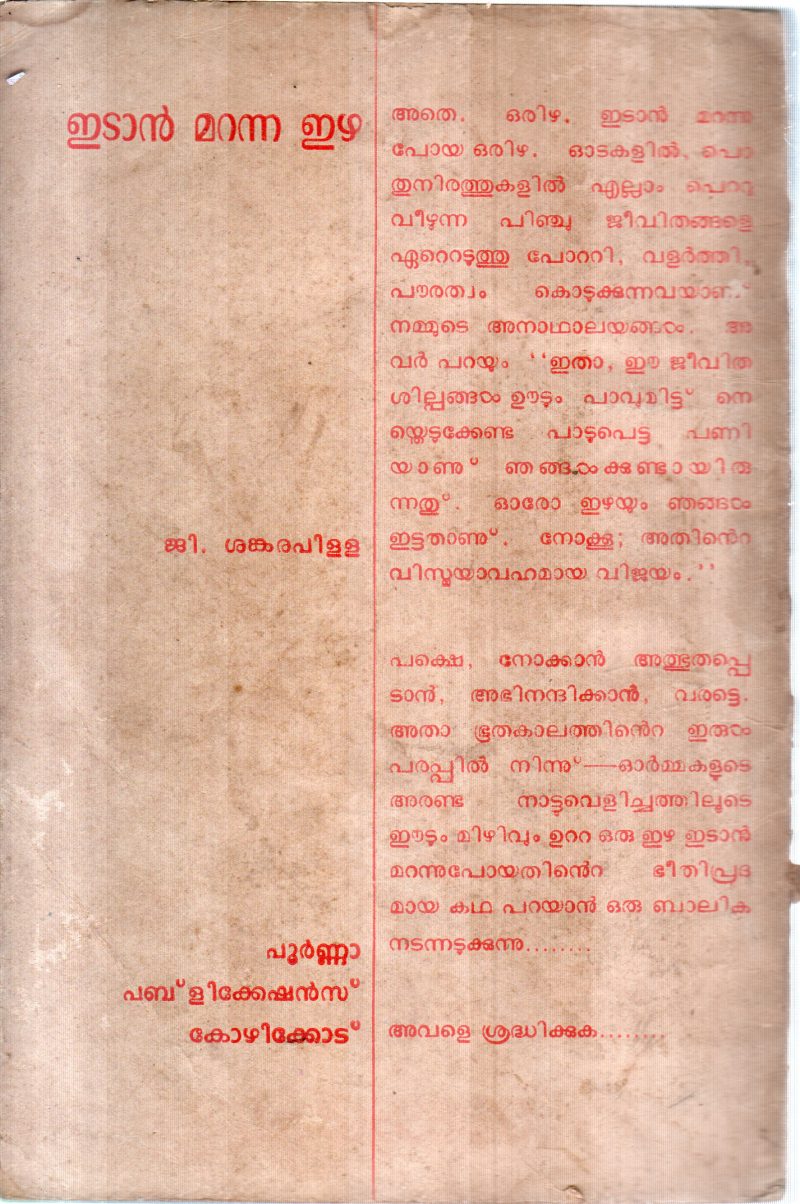 ഇടാൻ മറന്ന ഇഴ
ജി. ശങ്കരപിളള
പൂർണ്ണാ
പബ്ളിക്കേഷൻസ്
കോഴിക്കോട്
അതെ. ഒരിഴ. ഇടാൻ മറന്നു
പോയ ഒരിഴ. ഓടകളിൽ, പൊ
തുനിരത്തുകളിൽ എല്ലാം പെററു
വീഴുന്ന പിഞ്ചു ജീവിതങ്ങളെ
ഏറെറടുത്തു പോററി, വളർത്തി,
പൗരത്വം കൊടുക്കുന്നവയാണ്
നമ്മുടെ അനാഥാലയങ്ങൾ. അ
വർ പറയും ‘‘ഇതാ, ഈ ജീവിത
ശില്പങ്ങൾ ഊടും പാവുമിട്ട് നെ
യ്തെടുക്കേണ്ട പാടുപെട്ട പണി
യാണു് ഞങ്ങൾക്കുണ്ടായിരു
ന്നതു്. ഓരോ ഇഴയും ഞങ്ങൾ
ഇട്ടതാണു്. നോക്കൂ; അതിൻെറ
വിസ്മയാവഹമായ വിജയം.’’
പക്ഷെ, നോക്കാൻ അത്ഭുതപ്പെ
ടാൻ, അഭിനന്ദിക്കാൻ, വരട്ടെ.
അതാ ഭൂതകാലത്തിൻെറ ഇരുൾ
പരപ്പിൽ നിന്നു്—ഓർമ്മകളുടെ
അരണ്ട നാട്ടുവെളിച്ചത്തിലൂടെ
ഈടും മിഴിവും ഉററ ഒരു ഇഴ ഇടാൻ
മറന്നുപോയതിൻെറ ഭീതിപ്രദ
മായ കഥ പറയാൻ ഒരു ബാലിക
നടന്നടുക്കുന്നു........
അവളെ ശ്രദ്ധിക്കുക........